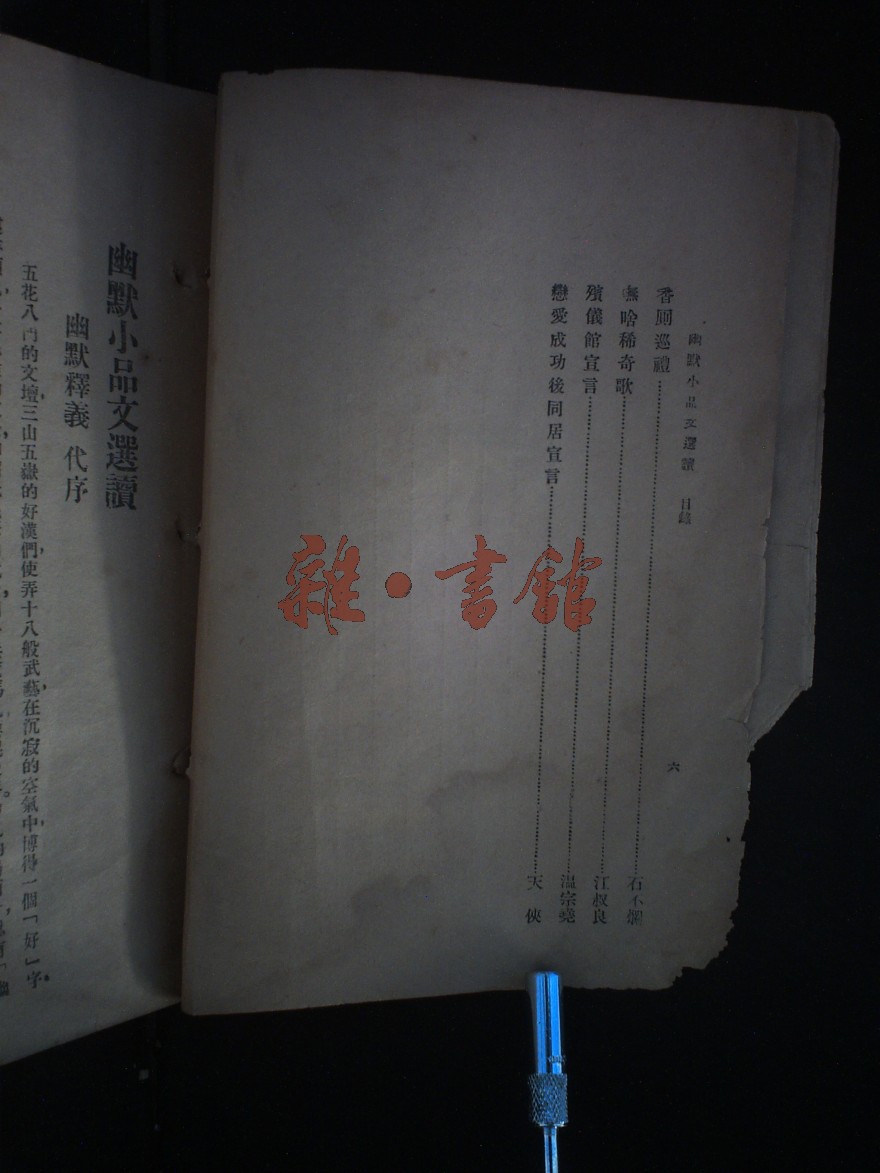 幽默小品文選讀 目錄
六
香厠巡禮 石不爛
嘸啥稀奇歌 江叔良
殯儀館宣言 溫宗堯
戀愛成功後同居宣言 天俠
雜·書館
幽默小品文選讀
幽默釋義 代序
五花八門的文壇，三山五嶽的好漢們，使弄十八般武藝，在沉寂的空氣中，博得一個「好」字。